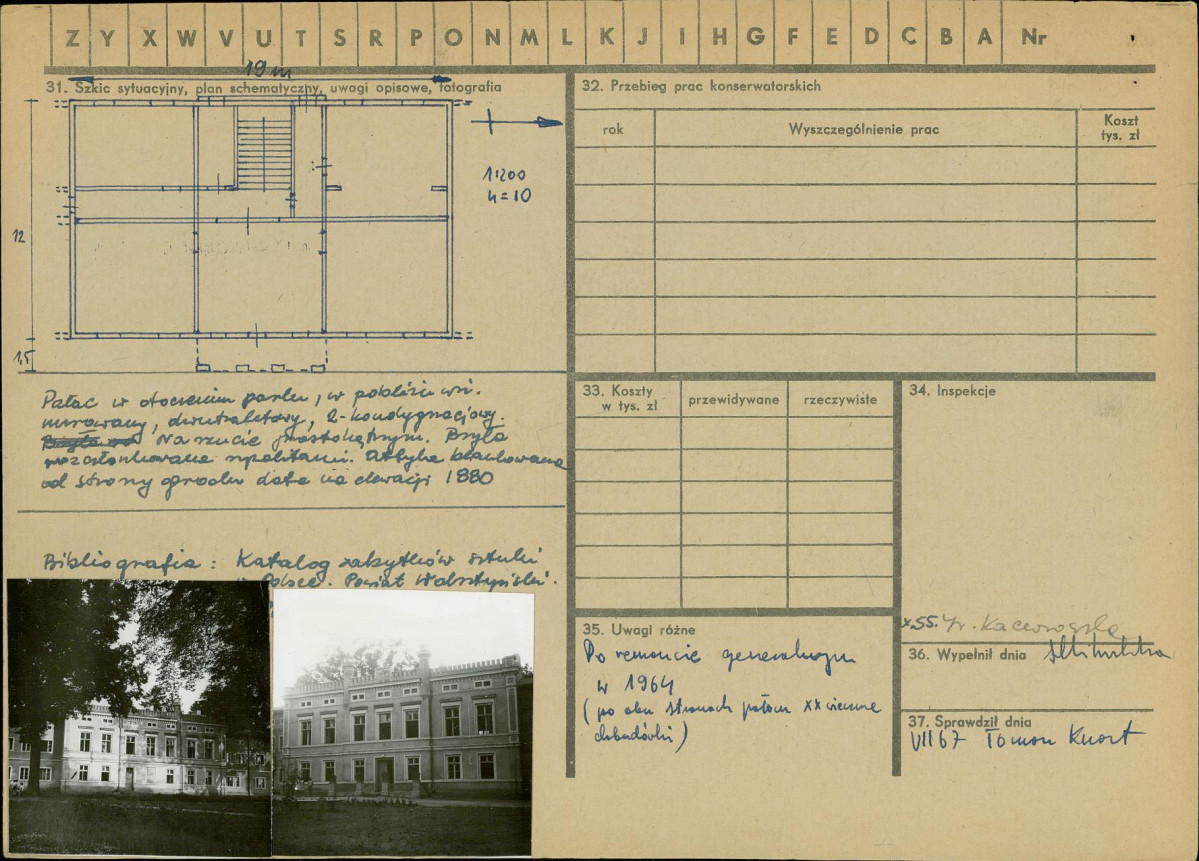 Z Y X W V U T S R P O N M L K J I H G F E D C B A Nr
31. Szkic sytuacyjny, plan schematyczny, uwagi opisowe, fotografia
19 m
1:200
h=10
12
1,5
Pałac w otoczeniu parku, w pobliżu wsi.
murowany, dwutraktowy, 2-kondygnacyjowy.
Na rzucie prostokątnym. Bryła
rozczłonkowana ryzalitami. Attyka blankowana
od strony ogrodu data na elewacji 1880
Bibliografia: Katalog zabytków sztuki
w Polsce. Powiat Wolsztyński.
32. Przebieg prac konserwatorskich
rok Wyszczególnienie prac Koszt
tys. zł
33. Koszty
w tys. zł przewidywane rzeczywiste
34. Inspekcje
X.55. Fr.
35. Uwagi różne
Po remoncie generalnym
w 1964
(po obu stronach pałacu XX wieczne
dobudówki)
36. Wypełnił dnia
37. Sprawdził dnia
VII 67